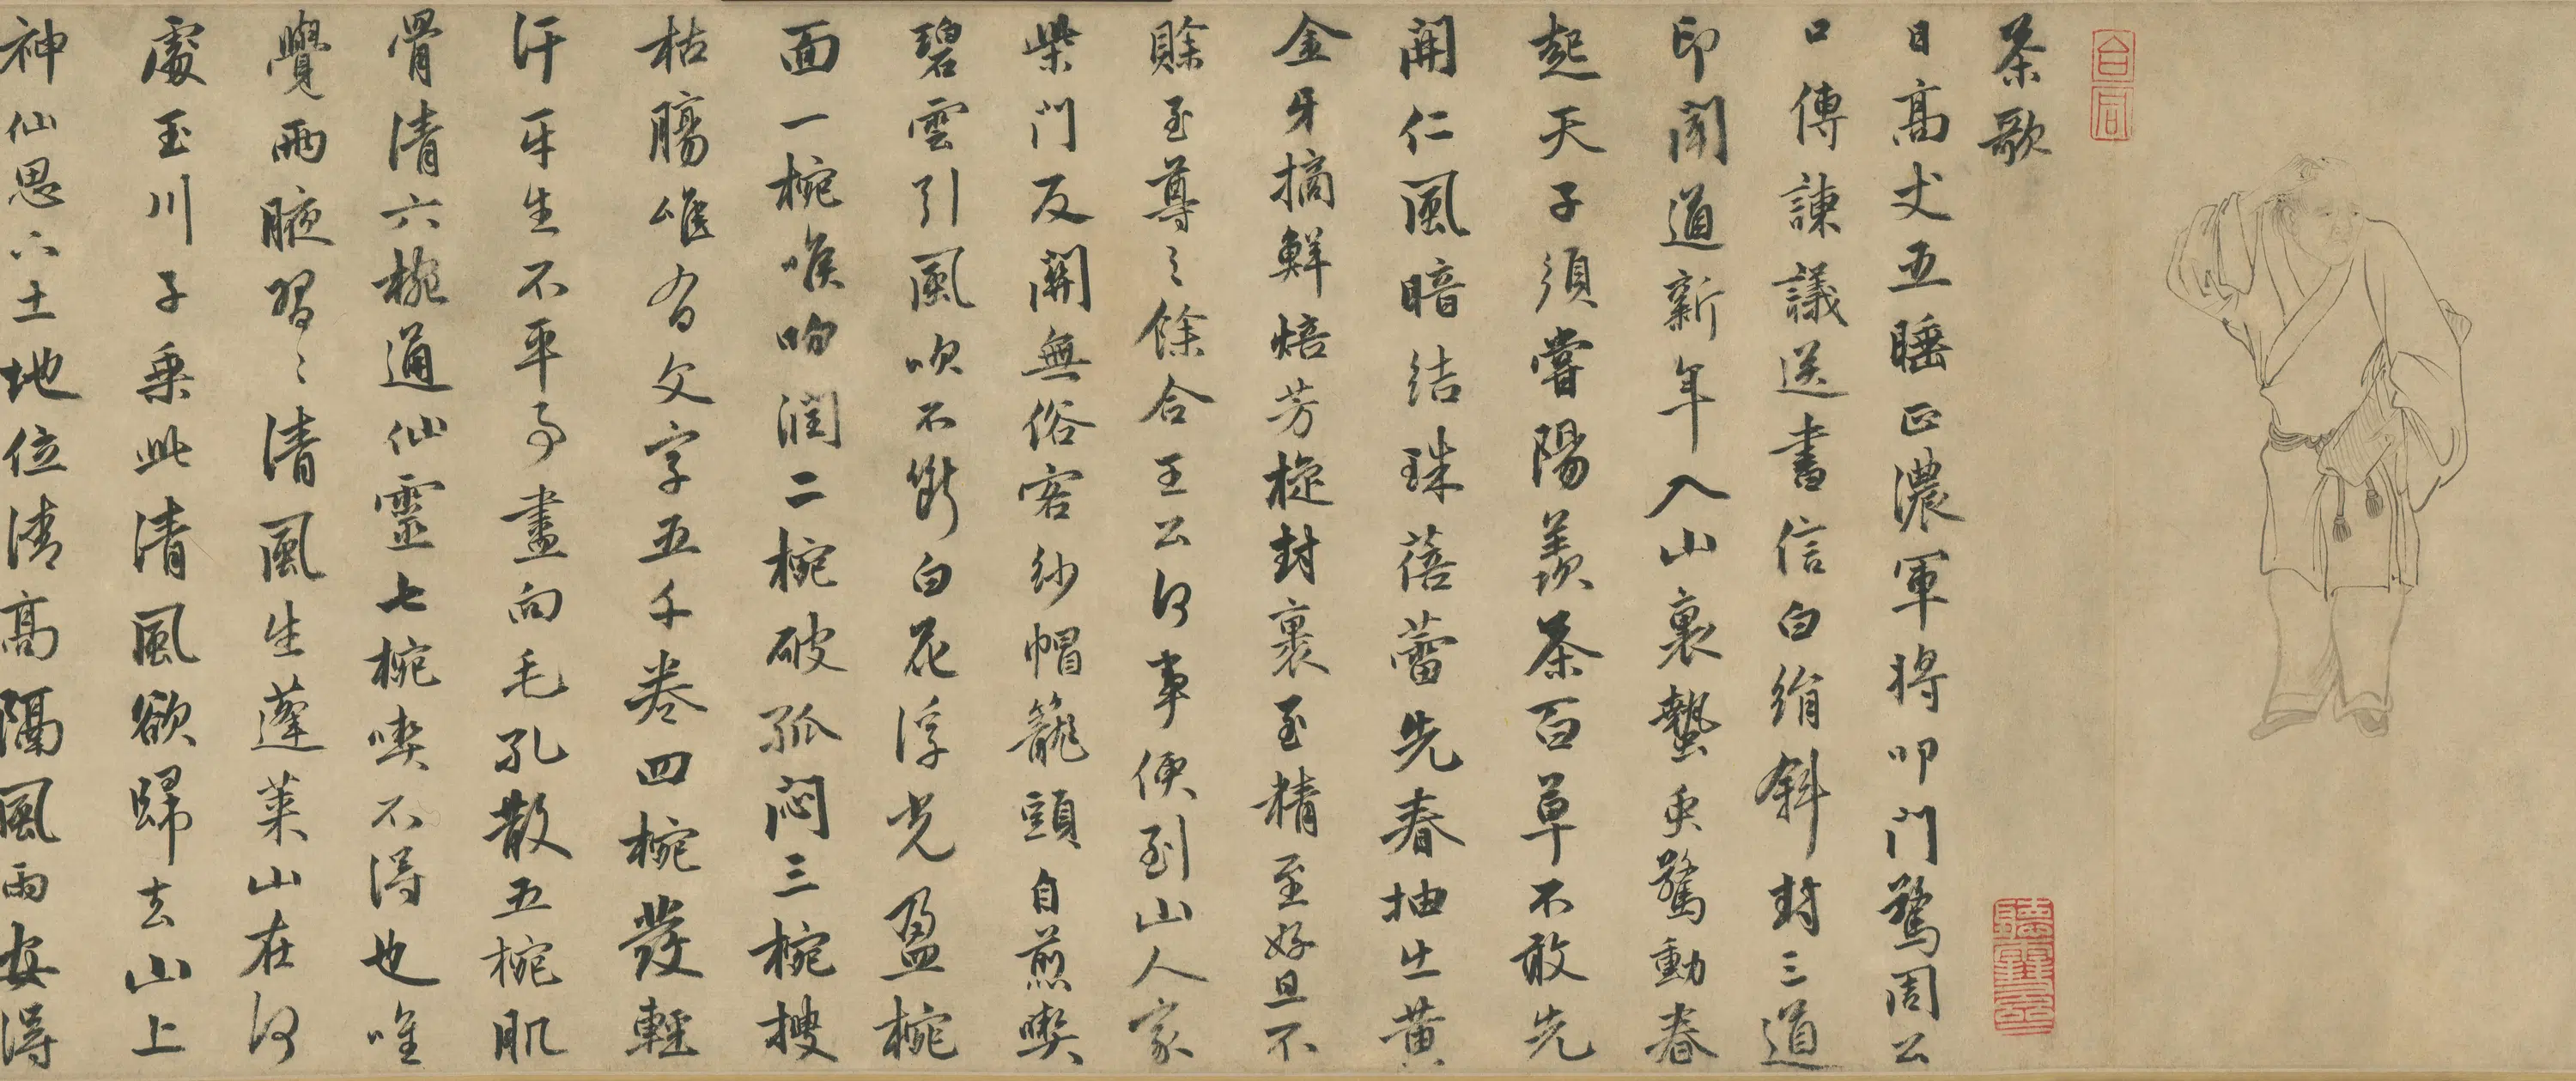 茶歌
日高丈五睡正濃軍將叩門驚周公
口傳諫議送書信白絹斜封三道
印聞道新年入山裏蟄虫驚動春
起天子須嘗陽羨茶百草不敢先
開仁風暗結珠蓓蕾先春抽出黃
金牙摘鮮焙芳旋封裹至精至好且不
賖至尊〻餘合王公何事便到山人家
柴門反關無俗客紗帽籠頭自煎喫
碧雲引風吹不斷白花浮光盈椀
面一椀喉吻潤二椀破孤悶三椀搜
枯腸唯有文字五千卷四椀發輕
汗平生不平事盡向毛孔散五椀肌
骨清六椀通仙靈七椀喫不得也唯
覺兩腋習〻清風生蓬萊山在何
處玉川子乘此清風欲歸去山上
神仙思下土地位清高隔風雨安得
合同